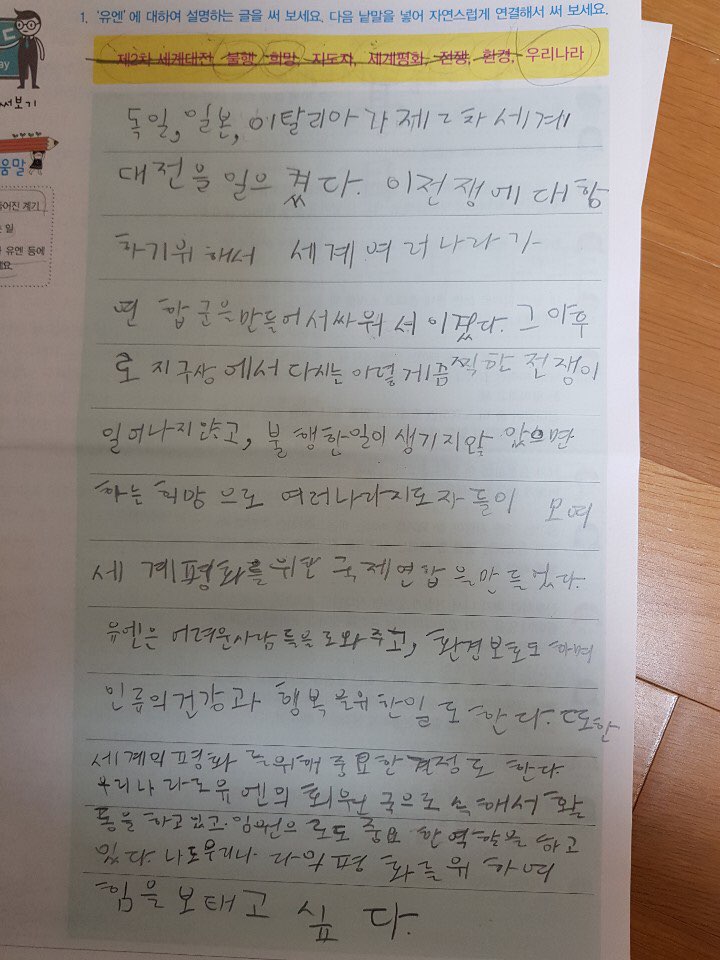 1. '유엔'에 대하여 설명하는 글을 써 보세요. 다음 낱말을 넣어 자연스럽게 연결해서 써 보세요.
제2차 세계대전, 불행, 희망, 지도자, 세계평화, 전쟁, 환경, 우리나라
ay
써보기
움말
어진 계기
일
유엔 등에
독일, 일본, 이탈리아가 제2차 세계
대전을 일으켰다. 이전쟁에 대항
하기위해서 세계여러나라가
면합군을만들어서싸워서이겼다. 그이후
로 지구상에서 다시는 이렇게끔찍한 전쟁이
일어나지않고, 불행한일이생기지않았으면
하는희망으로 여러나라지도자들이 모여
세계평화를위한 국제연합을만들었다.
유엔은 어려운사람들을도와주고, 환경보호도 하며
인류의건강과 행복을위한일도한다. 또한
세계의평화를위해중요한결정도 한다.
우리나라로유엔의회원국으로속해서활
동을하고있고. 임원으로도중요한역할을하고
있다. 나도우리나라와평화를위하여
힘을보태고 싶다.